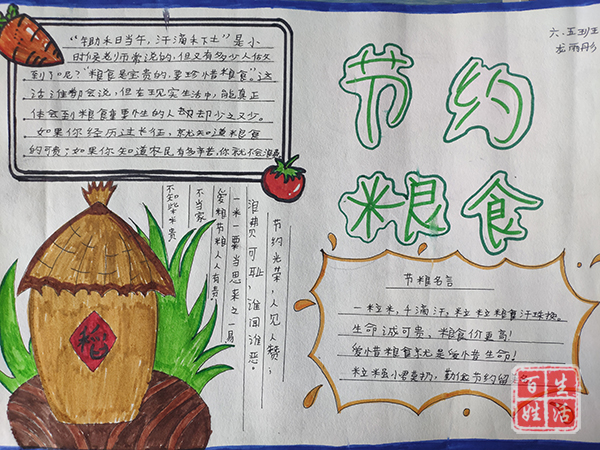 "锄禾日当午,汗滴禾下土"是小
时候老师常说的,但又有多少人做
到了呢?"粮食是宝贵的,要珍惜粮食"这
话谁都会说,但在现实生活中,能真正
体会到粮食重要性的人却却少之又少。
如果你经历过长征,就知道粮食
的可贵;如果你知道农民有多辛苦,你就不会浪费
节约
粮食
六.五班
节粮名言
一粒米,千滴汗,粒粒粮食汗珠换。
生命诚可贵、粮食价更高!
爱惜粮食就是爱惜生命!
粒米虽小君莫扔,勤俭节约留
节约光荣,人见人赞;
浪费可耻,谁闻谁恶。
一米一粟当思来之不易
爱粮节粮人人有责!
不当家
不知柴米贵
稻
百姓生活